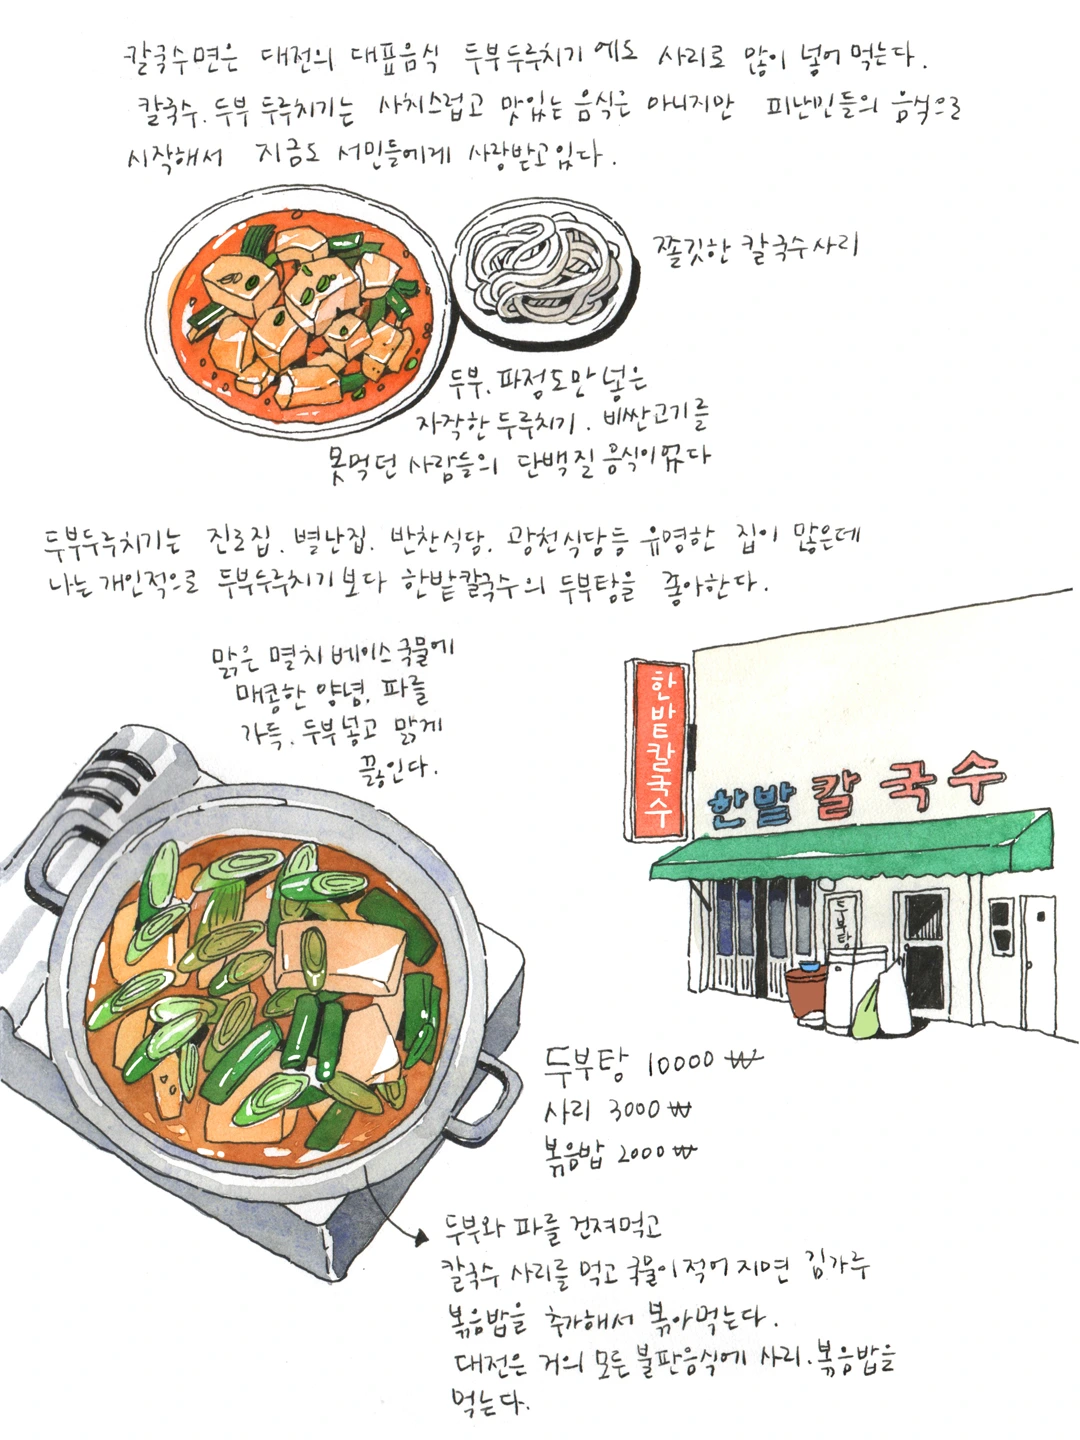 칼국수면은 대전의 대표음식 두부두루치기에도 사리로 많이 넣어 먹는다.
칼국수. 두부 두루치기는 사치스럽고 맛있는 음식은 아니지만 피난민들의 음식으로
시작해서 지금도 서민들에게 사랑받고 있다.
쫄깃한 칼국수사리
두부. 파정도만 넣은
자작한 두루치기. 비싼고기를
못먹던 사람들의 단백질 음식이었다
두부두루치기는 진로집. 별난집. 반찬식당. 광천식당등 유명한 집이 많은데
나는 개인적으로 두부두루치기보다 한밭칼국수의 두부탕을 좋아한다.
맑은 멸치 베이스 국물에
매콤한 양념. 파를
가득. 두부넣고 맑게
끓인다.
한밭칼국수
한밭 칼국수
두부탕
두부탕 10000 ₩
사리 3000 ₩
볶음밥 2000 ₩
두부와 파를 건져먹고
칼국수 사리를 먹고 국물이 적어지면 김가루
볶음밥을 추가해서 볶아먹는다.
대전은 거의 모든 불판음식에 사리.볶음밥을
먹는다.